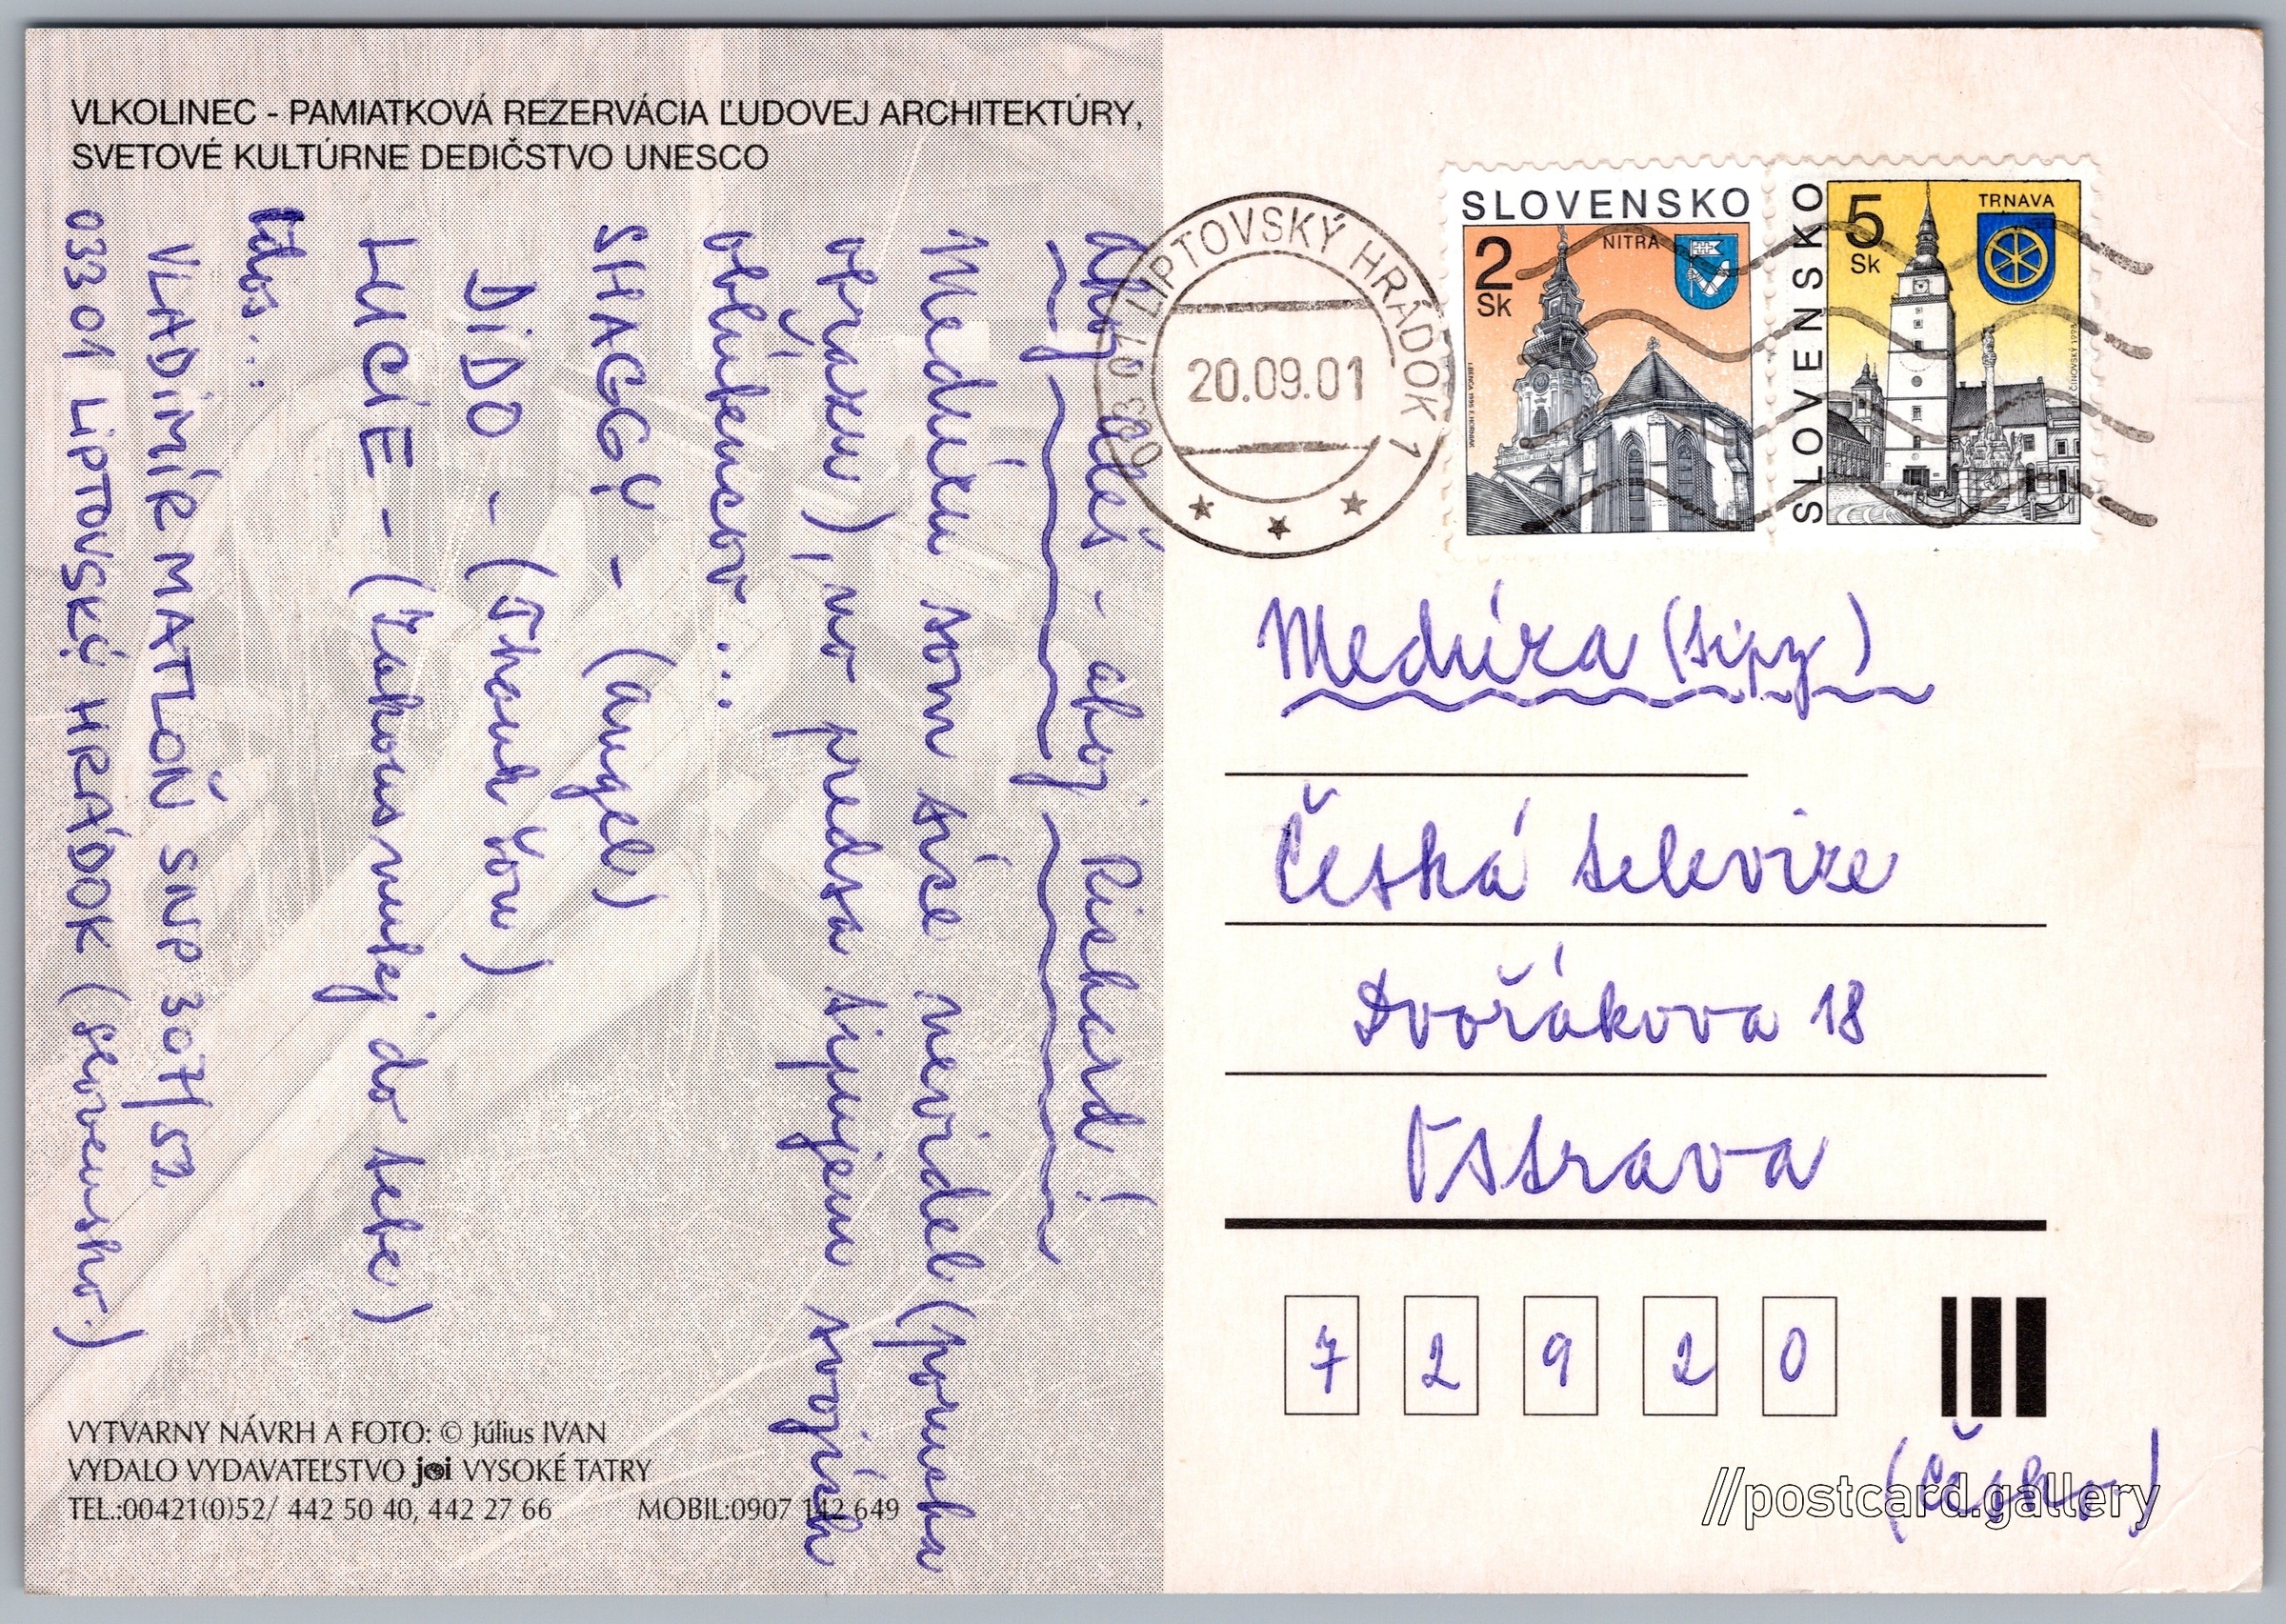 VLKOLINEC - PAMIATKOVÁ REZERVÁCIA ĽUDOVEJ ARCHITEKTÚRY,
SVETOVÉ KULTÚRNE DEDIČSTVO UNESCO
Ahoj - ahoj Richard!
Medúzu som síce nevidel (porucha
obrazu), no predsa tipujem svojich
oblúbencov ...
SHAGGY - (Angel)
DiDO - (Thank You)
LUCIE - (Zakousnutej do tebe)
VLADiMÍR MATLOŇ SNP 307/52
033 01 LiPTOVSKÝ HRÁDOK (Slovensko)
VYTVARNY NÁVRH A FOTO: © Július IVAN
VYDALO VYDAVATEĽSTVO joi VYSOKÉ TATRY
TEL.:00421(0)52/ 442 50 40, 442 27 66 MOBIL:0907 142 649
033 01 LIPTOVSKÝ HRÁDOK 1
20.09.01
SLOVENSKO
2 Sk
NITRA
SLOVENSKO
5 Sk
TRNAVA
Medúza (tipy)
Česká televize
Dvořákova 18
Ostrava
7 2 9 2 0
(Česko)
//postcard.gallery